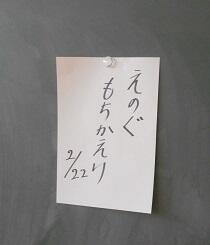 えのぐ
もちかえり
2/22